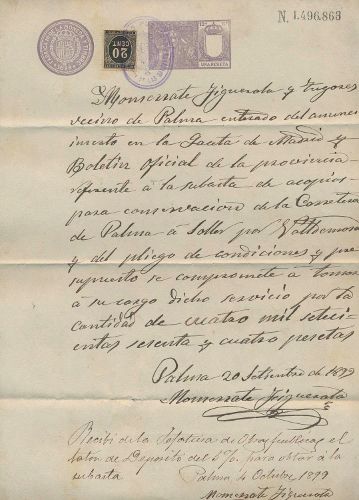 N. 1.496.863
20
CENT
UNA PESETA
Monserrate Figuerola y Tugores
vecino de Palma enterado del anuncio
inserto en la Gaceta de Madrid y
Boletin Oficial de la provincia
referente á la subasta de acopios
para conservacion de la Carretera
de Palma á Soller por Valldemosa
y del pliego de condiciones y pre
supuesto se compromete á tomar
á su cargo dicho servicio por la
cantidad de cuatro mil seteci
entas sesenta y cuatro pesetas
Palma 20 Setiembre de 1899
Monserrate Figuerola
Recibi de la Jefatura de Obras publicas el
talon de Deposito del 5%. para optar á la
subasta
Palma 4 Octubre 1899
Monserrate Figuerola